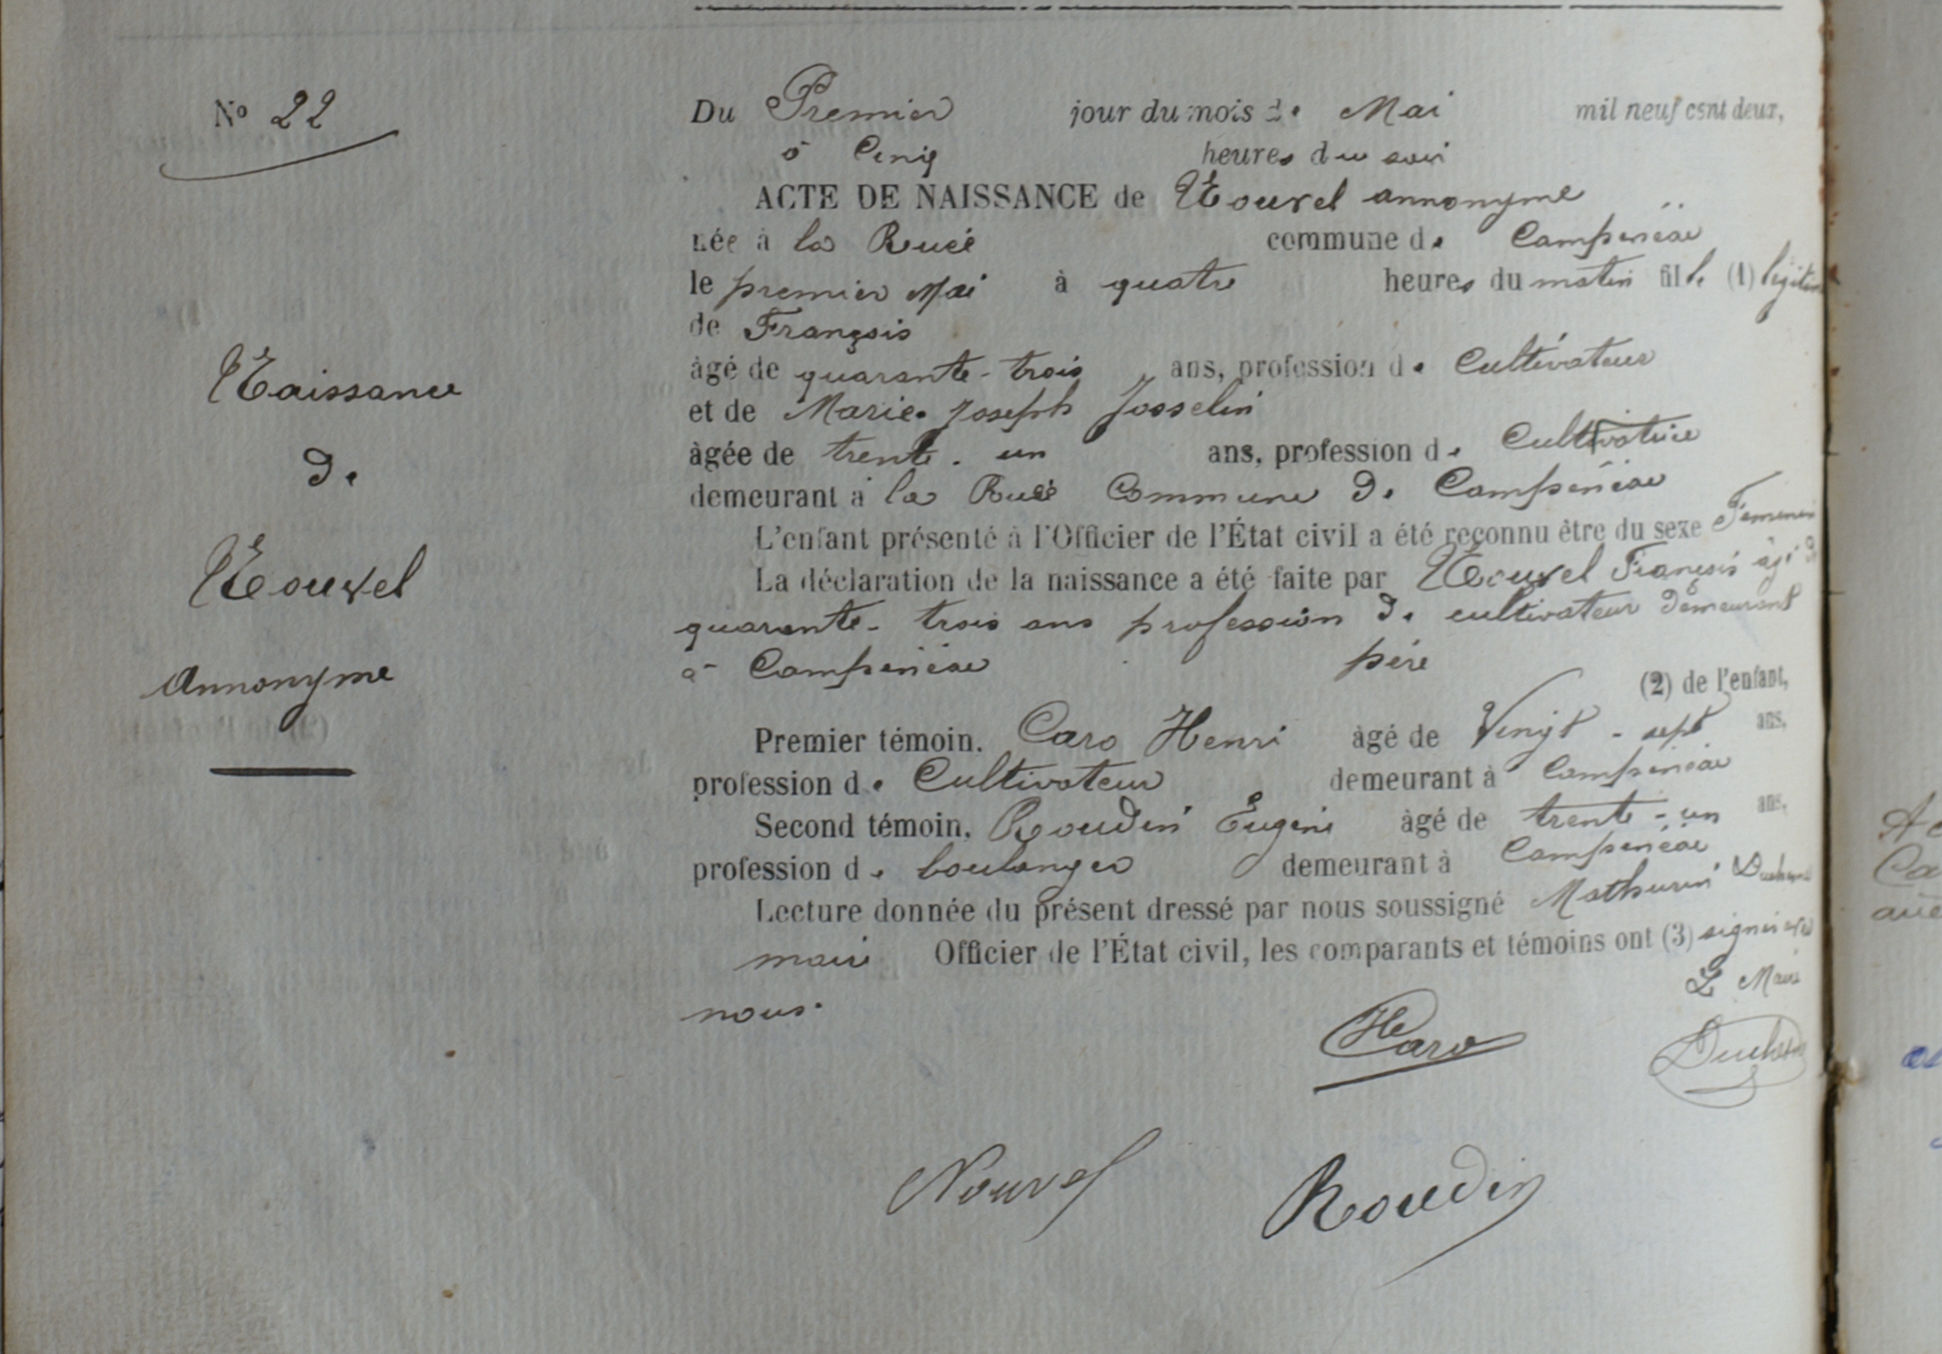 N° 22
Naissance
de
Nouvel
Annonyme
Du Premier jour du mois de Mai mil neuf cent deux,
à Cinq heures du soir
ACTE DE NAISSANCE de Nouvel annonyme
née à la Ruée commune de Campénéac
le premier Mai à quatre heures du matin fille (1)
de François
âgé de quarante-trois ans, profession de Cultivateur
et de Marie Joseph Josselin
âgée de trente-un ans, profession de Cultivatrice
demeurant à la Ruée Commune de Campénéac
L'enfant présenté à l'Officier de l'État civil a été reconnu être du sexe Feminin
La déclaration de la naissance a été faite par Nouvel François âgé de
quarante-trois ans profession de cultivateur demeurant
à Campénéac père (2) de l'enfant,
Premier témoin, Caro Henri âgé de Vingt-sept ans,
profession de Cultivateur demeurant à Campénéac
Second témoin, Roudin Eugène âgé de trente-un ans,
profession de boulanger demeurant à Campénéac
Lecture donnée du présent dressé par nous soussigné Mathurin
maire Officier de l'État civil, les comparants et témoins ont (3) signé avec
nous. Le Maire
H Caro
Nouvel
Roudin